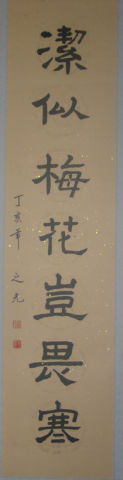 潔似梅花豈畏寒
丁亥年 之光